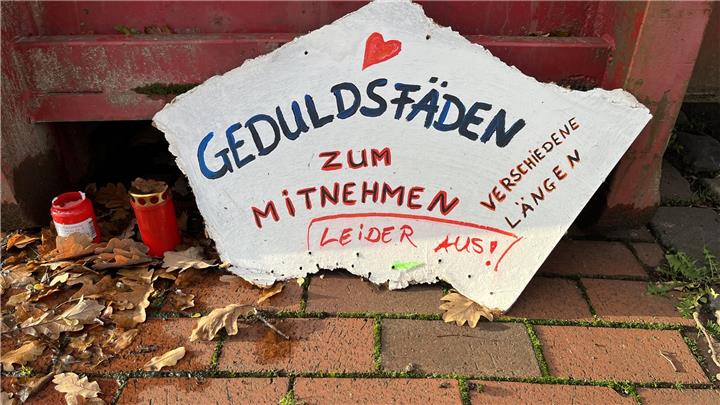 GEDULDSFÄDEN
ZUM
MITNEHMEN
VERSCHIEDENE
LÄNGEN
LEIDER AUS!